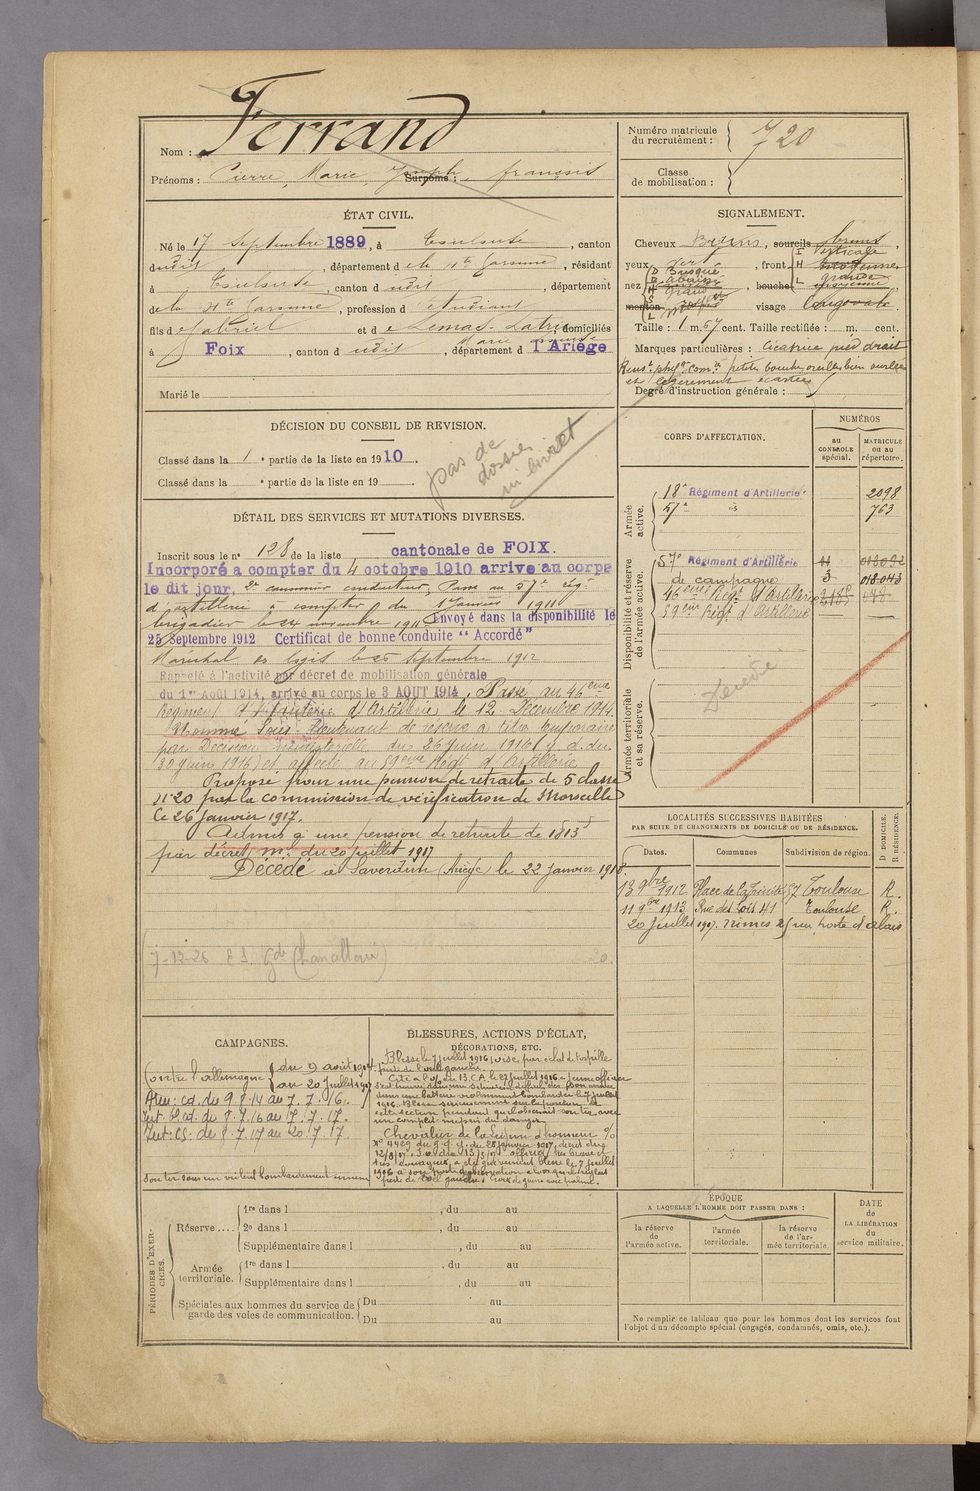 Nom : Ferrand
Prénoms : Pierre, Marie, Joseph, françois
Surnoms :
Numéro matricule du recrutement : 720
Classe de mobilisation :
ÉTAT CIVIL.
Né le 17 Septembre 1889, à Toulouse, canton
dudit, département de la Hte Garonne, résidant
à Toulouse, canton dudit, département
de la Hte Garonne, profession d'étudiant
fils de Gabriel et de Latrie Marie, domiciliés
à Foix, canton dudit, département d l'Ariège
Marié le
SIGNALEMENT.
Cheveux Bruns, sourcils bruns,
yeux vert, front verticale
nez Busqué, bouche moyenne,
menton visage Long ovale
Taille : 1 m. 67 cent. Taille rectifiée : m. cent.
Marques particulières : Cicatrice pied droit
Renst physe comre petite bouche oreilles bien ourlées
et légèrement écartées
Degré d'instruction générale :
DÉCISION DU CONSEIL DE REVISION.
Classé dans la 1e partie de la liste en 1910.
Classé dans la e partie de la liste en 19
pas de
dossier
ni livret
CORPS D'AFFECTATION.
NUMÉROS
AU CONTRÔLE spécial.
MATRICULE OU AU répertoire.
Armée active.
18e Régiment d'Artillerie 2098
57e id 763
Disponibilité et réserve de l'armée active.
57e Régiment d'Artillerie
de campagne 3 018.043
46eme Regt d'Artillerie
59eme Regt d'Artillerie
Armée territoriale et sa réserve.
Décédé
DÉTAIL DES SERVICES ET MUTATIONS DIVERSES.
Inscrit sous le no 128 de la liste cantonale de FOIX.
Incorporé a compter du 4 octobre 1910 arrive au corps
le dit jour, 2e canonnier conducteur, Passé au 57e rég.
d'artillerie à compter du 1 janvier 1911
brigadier le 24 novembre 1911 Envoyé dans la disponibilité le
25 Septembre 1912 Certificat de bonne conduite "Accordé"
Maréchal des logis le 25 septembre 1912
Rappelé à l'activité par décret de mobilisation générale
du 1er Août 1914, arrivé au corps le 3 AOUT 1914, Passé au 46eme
Régiment d'Artillerie le 12 Decembre 1914.
Nommé Sous-Lieutenant de réserve à titre temporaire
par Décision ministérielle du 26 juin 1916 (J. O. du
30 juin 1916) et affecté au 59eme Regt d'Artillerie
Proposé pour une pension de retraite de 5 classe
no 20 par la commission de vérification de Marseille
le 26 janvier 1917.
Admis à une pension de retraite de 1813f
par décret m. du 20 juillet 1917
Décédé à Saverdun (Ariège) le 22 janvier 1918.
7-12-26 Gde Chancellerie
LOCALITÉS SUCCESSIVES HABITÉES
PAR SUITE DE CHANGEMENTS DE DOMICILE OU DE RÉSIDENCE.
Dates. Communes Subdivision de région. D DOMICILE. R RÉSIDENCE.
13 9bre 1912 Place de la Trinité 57 Toulouse R.
11 9bre 1913 Rue des Lois 41 Toulouse R.
20 juillet 1917. Nimes 25 rue porte d'alais
CAMPAGNES.
Contre l'allemagne du 9 août 1914
au 20 juillet 1917
Aru : cd. du 9.8.14 au 7.7.16.
Int. bl. cd. du 8.7.16 au 7.7.17.
Int. CS. du 8.7.17 au 20.7.17.
BLESSURES, ACTIONS D'ÉCLAT,
DÉCORATIONS, ETC.
Blessé le 7 juillet 1916 par éclat de torpille
perte de l'oeil gauche.
Cité à l'O. du 13 C.A. le 22 juillet 1916 - Jeune officier
dans une batterie violemment bombardée le 7 juillet
1916. Blessé
cette section pendant qu'il observait son tir avec
un complet mépris du danger.
Chevalier de la Légion d'honneur
No 4429 du G.Q.G. du 28 janvier 1917
officier très brave et
très courageux, a été grièvement blessé le 7 juillet
1916 à son poste d'observation alors qu'il réglait
perte de l'oeil gauche. Croix de guerre avec palme.
son tir sous un violent bombardement ennemi
PÉRIODES D'EXERCICES.
Réserve....
1re dans l , du au
2e dans l , du au
Supplémentaire dans l , du au
Armée territoriale.
1re dans l , du au
Supplémentaire dans l , du au
Spéciales aux hommes du service de garde des voies de communication.
Du au
Du au
ÉPOQUE
A LAQUELLE L'HOMME DOIT PASSER DANS :
la réserve de l'armée active.
l'armée territoriale.
la réserve de l'armée territoriale.
DATE de LA LIBÉRATION du service militaire.
Ne remplir ce tableau que pour les hommes dont les services font
l'objet d'un décompte spécial (engagés, condamnés, omis, etc.).